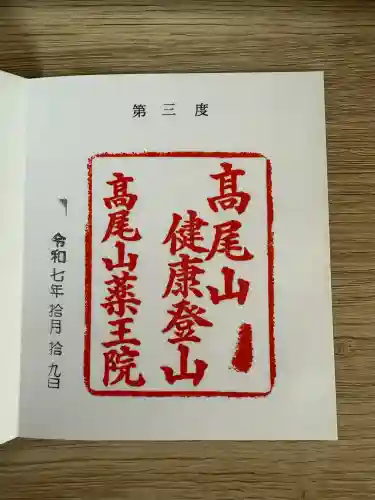 第三度
髙尾山
健康登山
髙尾山薬王院
令和七年拾月拾九日